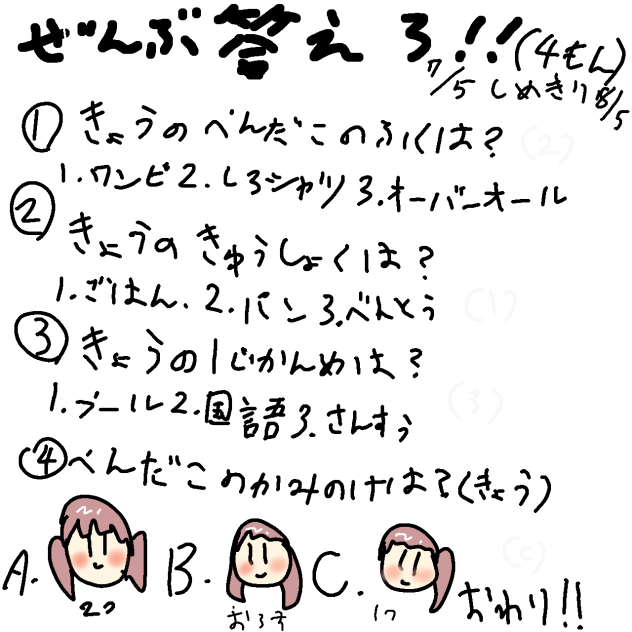 ぜんぶ答えろ!!(4もん)
7/5 しめきり8/5
① きょうのべんだこのふくは? (2)
1.ワンピ 2.しろシャツ 3.オーバーオール
② きょうのきゅうしょくは?
1.ごはん. 2.パン 3.べんとう (1)
③ きょうの1じかんめは?
1.プール 2.国語 3.さんすう (3)
④ べんだこのかみのけは?(きょう)
A. B. C. (c)
2つ おろす 1つ おわり!!